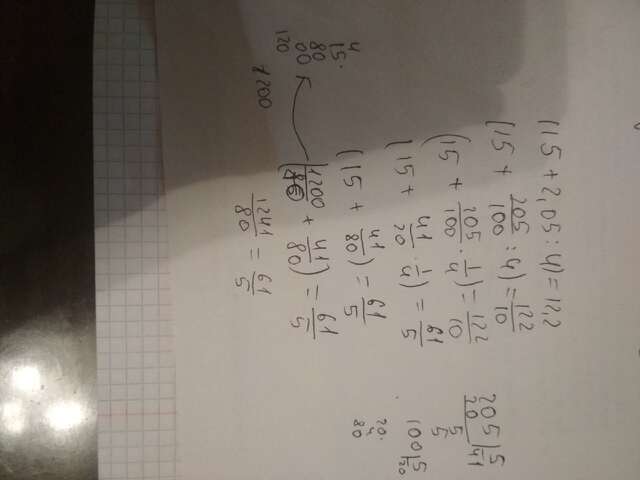 (15 + 2,05 : 4) = 12,2
(15 + 205/100 : 4) = 122/10
(15 + 205/100 · 1/4) = 122/10
(15 + 41/20 · 1/4) = 61/5
(15 + 41/80) = 61/5
(1200/80 + 41/80) = 61/5
1241/80 = 61/5
205|5
20 |41
5
5
100|5
20
20·
4
80
4
15·
80
00
120
1200